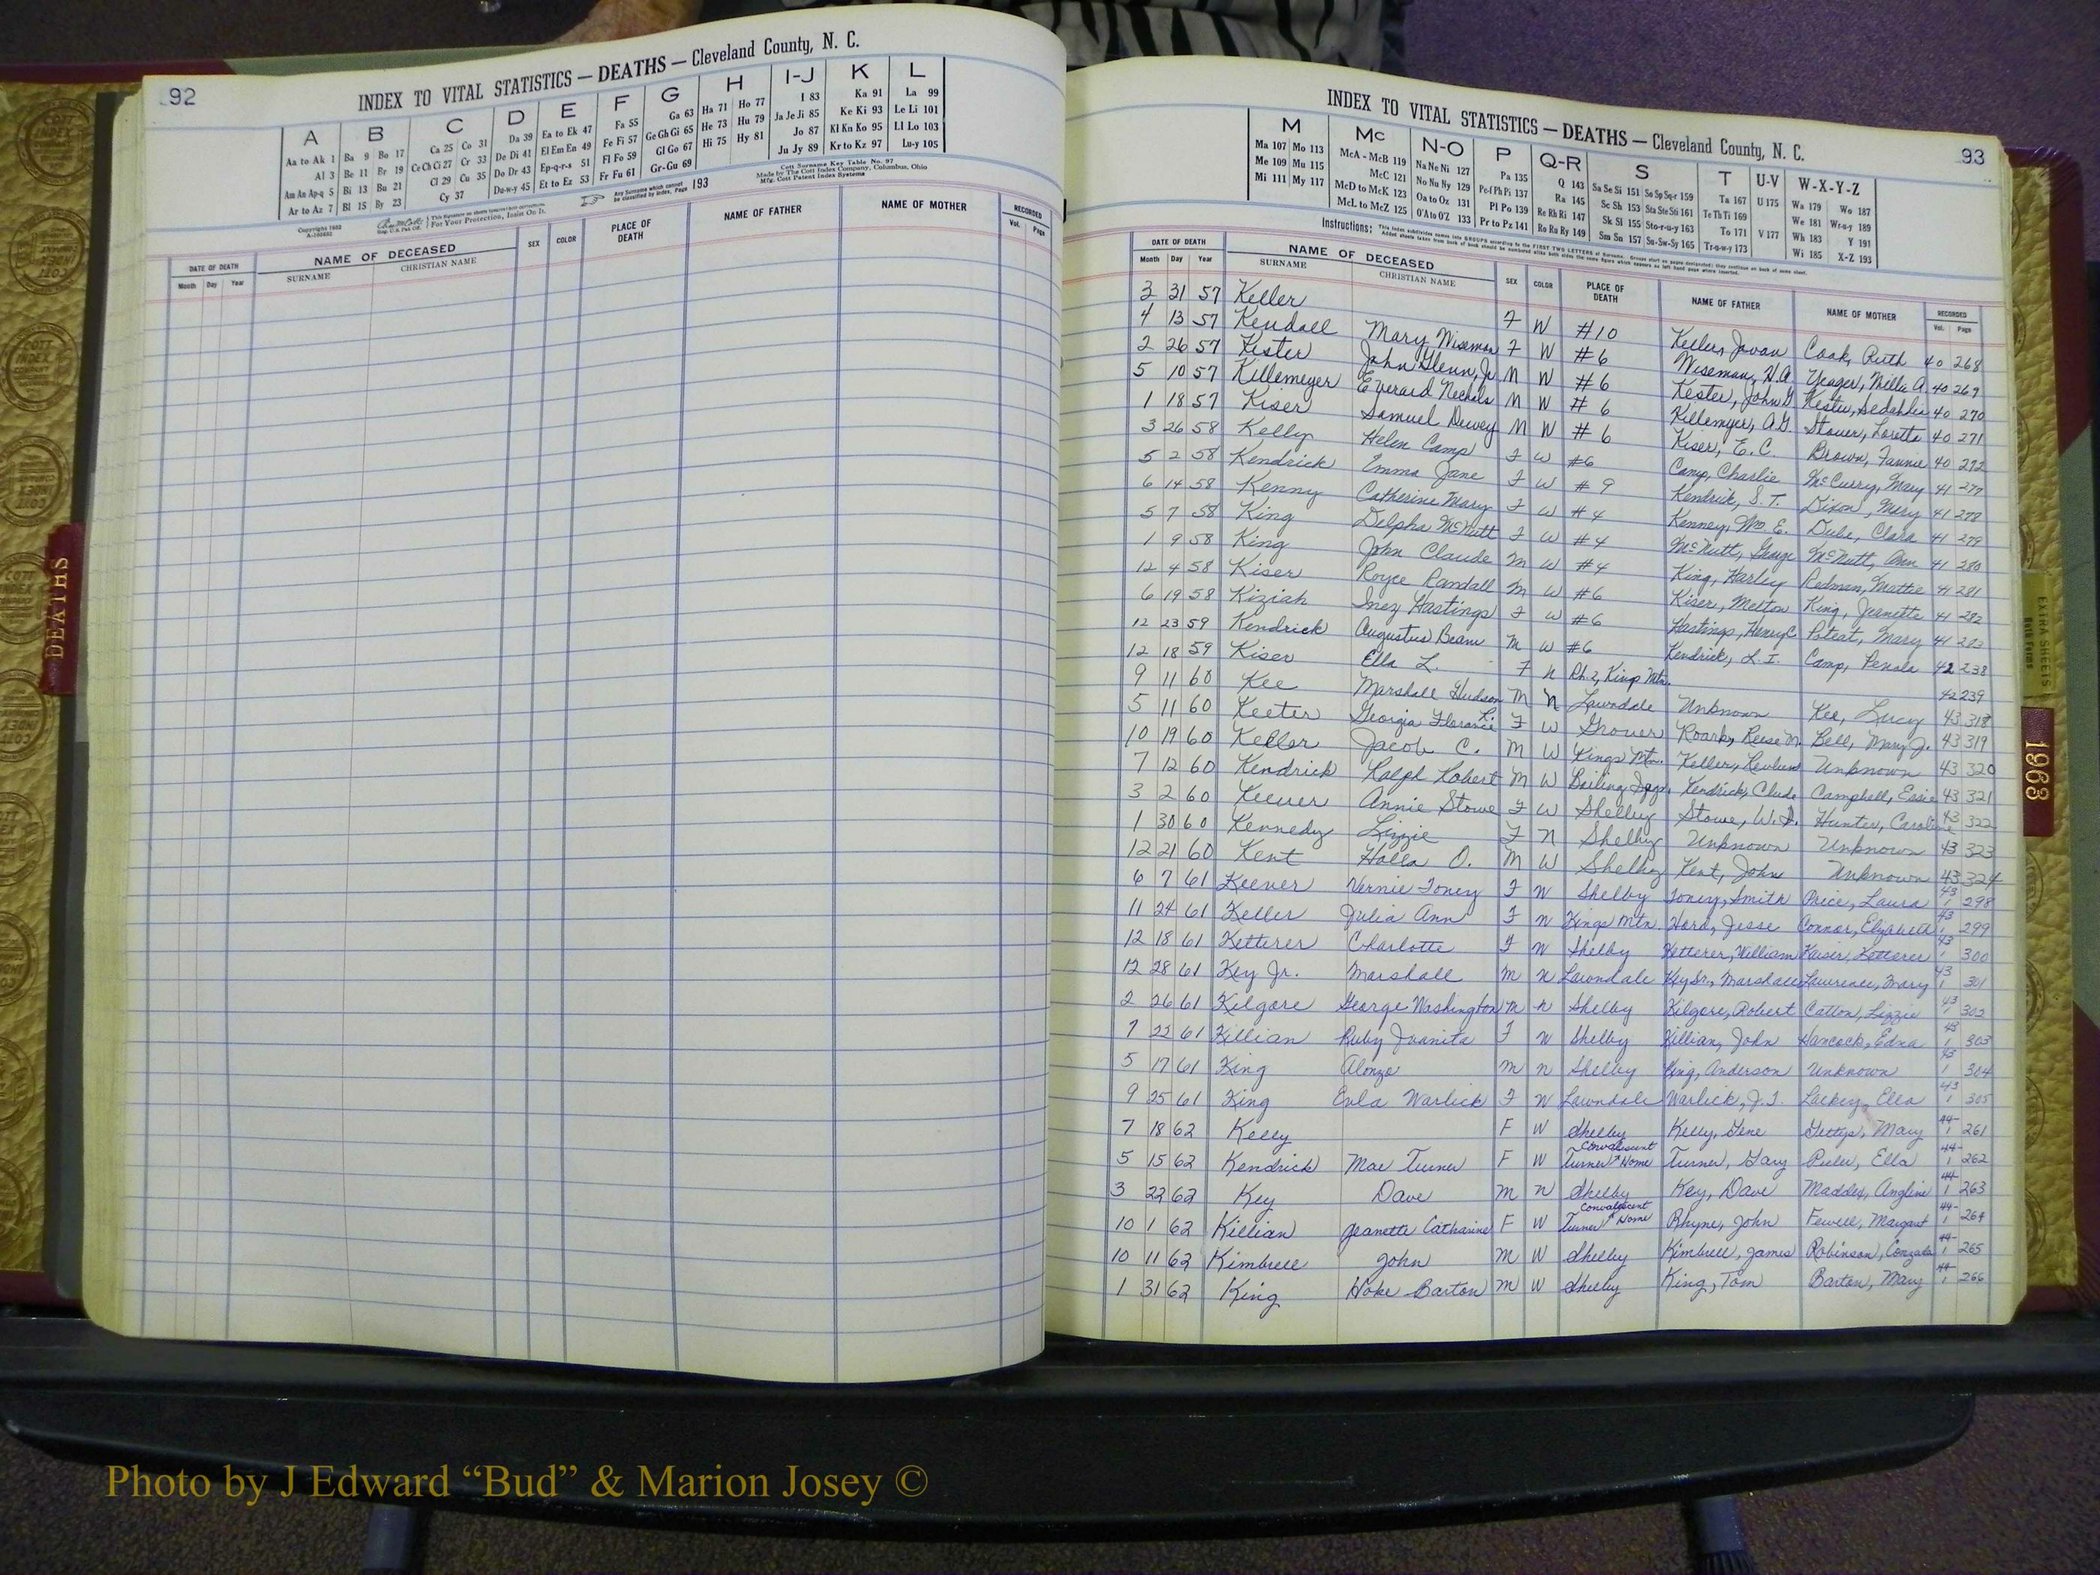 92
INDEX TO VITAL STATISTICS — DEATHS — Cleveland County, N. C.
A B C D E F G H I-J K L
Aa to Ak 1 Ba 9 Bo 17 Ca 25 Co 31 Da 39 Ea to Ek 47 Fa 55 Ga 63 Ha 71 Ho 77 I 83 Ka 91 La 99
Al 3 Be 11 Br 19 Ce Ch Ci 27 Cr 33 De Di 41 El Em En 49 Fe Fi 57 Ge Gh Gi 65 He 73 Hu 79 Ja Je Ji 85 Ke Ki 93 Le Li 101
Am An Ap-q 5 Bi 13 Bu 21 Cl 29 Cu 35 Do Dr 43 Ep-q-r-s 51 Fl Fo 59 Gl Go 67 Hi 75 Hy 81 Jo 87 Kl Kn Ko 95 Ll Lo 103
Ar to Az 7 Bl 15 By 23 Cy 37 Du-w-y 45 Et to Ez 53 Fr Fu 61 Gr-Gu 69 Ju Jy 89 Kr to Kz 97 Lu-y 105
Cott Surname Key Table No. 97
Made by The Cott Index Company, Columbus, Ohio
Mfg. Cott Patent Index Systems
Any Surname which cannot be classified by index, Page 193
For Your Protection, Insist On It.
DATE OF DEATH NAME OF DECEASED SEX COLOR PLACE OF DEATH NAME OF FATHER NAME OF MOTHER RECORDED
Month Day Year SURNAME CHRISTIAN NAME Vol. Page
93
INDEX TO VITAL STATISTICS — DEATHS — Cleveland County, N. C.
M Mc N-O P Q-R S T U-V W-X-Y-Z
Ma 107 Mo 113 McA - McB 119 Na Ne Ni 127 Pa 135 Q 143 Sa Se Si 151 So Sp Sq-r 159 Ta 167 U 175 Wa 179 Wo 187
Me 109 Mu 115 McC 121 No Nu Ny 129 Pe-f Ph Pi 137 Ra 145 Sc Sh 153 Sta Ste Sti 161 Te Th Ti 169 We 181 Wr-u-y 189
Mi 111 My 117 McD to McK 123 Oa to Oz 131 Pl Po 139 Re Rh Ri 147 Sk Sl 155 Sto-r-u-y 163 To 171 V 177 Wh 183 Y 191
McL to McZ 125 O'A to O'Z 133 Pr to Pz 141 Ro Ru Ry 149 Sm Sn 157 Su-Sw-Sy 165 Tr-u-w-y 173 Wi 185 X-Z 193
DATE OF DEATH NAME OF DECEASED SEX COLOR PLACE OF DEATH NAME OF FATHER NAME OF MOTHER RECORDED
Month Day Year SURNAME CHRISTIAN NAME Vol. Page
3 31 57 Keller F W #10 Keller, Jovan Cook, Ruth 40 268
4 13 57 Kendall Mary Wiseman F W #6 Wiseman, H.A. Yeager, Nellie A 40 269
2 26 57 Kester John Glenn, Jr M W #6 Kester, John G Kester, Sedahlia 40 270
5 10 57 Killemeyer Everard Nechols M W #6 Killemeyer, A.G. Stover, Loretta 40 271
1 18 57 Kiser Samuel Dewey M W #6 Kiser, E. C. Brown, Fannie 40 272
3 26 58 Kelly Helen Camp F W #6 Camp, Charlie McCurry, Mary 41 277
5 2 58 Kendrick Emma Jane F W #9 Kendrick, S. T. Dixon, Mary 41 278
6 14 58 Kenny Catherine Mary F W #4 Kenney, Wm. E. Dube, Clara 41 279
5 7 58 King Delpha McNutt F W #4 McNutt, George McNutt, Ann 41 280
1 9 58 King John Claude M W #4 King, Harley Redman, Mattie 41 281
12 4 58 Kiser Royce Randall M W #6 Kiser, Melton King, Jeanette 41 282
6 19 58 Kiziah Inez Hastings F W #6 Hastings, Henry C Poteat, Mary 41 283
12 23 59 Kendrick Augustus Beam M W #6 Kendrick, L. I. Camp, Penola 42 238
12 18 59 Kiser Ella L. F N Rh. 2, Kings Mtn. 42 239
9 11 60 Kee Marshall Hudson M N Lawndale Unknown Kee, Lucy 43 318
5 11 60 Keeter Georgia Florance R. F W Grover Roark, Reese M. Bell, Mary J. 43 319
10 19 60 Keller Jacob C. M W Kings Mtn. Keller, Reuben Unknown 43 320
7 12 60 Kendrick Ralph Robert M W Boiling Spgs. Kendrick, Clude Campbell, Essie 43 321
3 2 60 Keever Annie Stowe F W Shelby Stowe, W.D. Hunter, Caroline 43 322
1 30 60 Kennedy Lizzie F N Shelby Unknown Unknown 43 323
12 21 60 Kent Holla O. M W Shelby Kent, John Unknown 43 324
6 7 61 Keever Vernie Toney F W Shelby Toney, Smith Price, Laura 43 1 298
11 24 61 Keller Julia Ann F W Kings Mtn. Hord, Jesse Connor, Elizabeth 43 1 299
12 18 61 Ketterer Charlotte F W Shelby Ketterer, William Kaiser, Ketterer 43 1 300
12 28 61 Key Jr. Marshall M N Lawndale Key Sr., Marshall Lawrence, Mary 43 1 301
2 26 61 Kilgore George Washington M N Shelby Kilgore, Robert Catton, Lizzie 43 1 302
7 22 61 Killian Ruby Juanita F W Shelby Killian, John Hancock, Edna 43 1 303
5 17 61 King Alonzo M N Shelby King, Anderson Unknown 43 1 304
9 25 61 King Eula Warlick F W Lawndale Warlick, J.T. Lackey, Ella 43 1 305
7 18 62 Kelly F W Shelby Kelly, Gene Gettys, Mary 44 1 261
5 15 62 Kendrick Mae Turner F W Turner Convalescent Home Turner, Gary Peeler, Ella 44 1 262
3 22 62 Key Dave M N Shelby Key, Dave Maddey, Angline 44 1 263
10 1 62 Killian Jeanette Catharine F W Turner Convalescent Home Rhyne, John Fewell, Margaret 44 1 264
10 11 62 Kimbrell John M W Shelby Kimbrell, James Robinson, Conzada 44 1 265
1 31 62 King Hoke Barton M W Shelby King, Tom Barton, Mary 44 1 266
DEATHS
1963
EXTRA SHEETS
Photo by J Edward “Bud” & Marion Josey ©